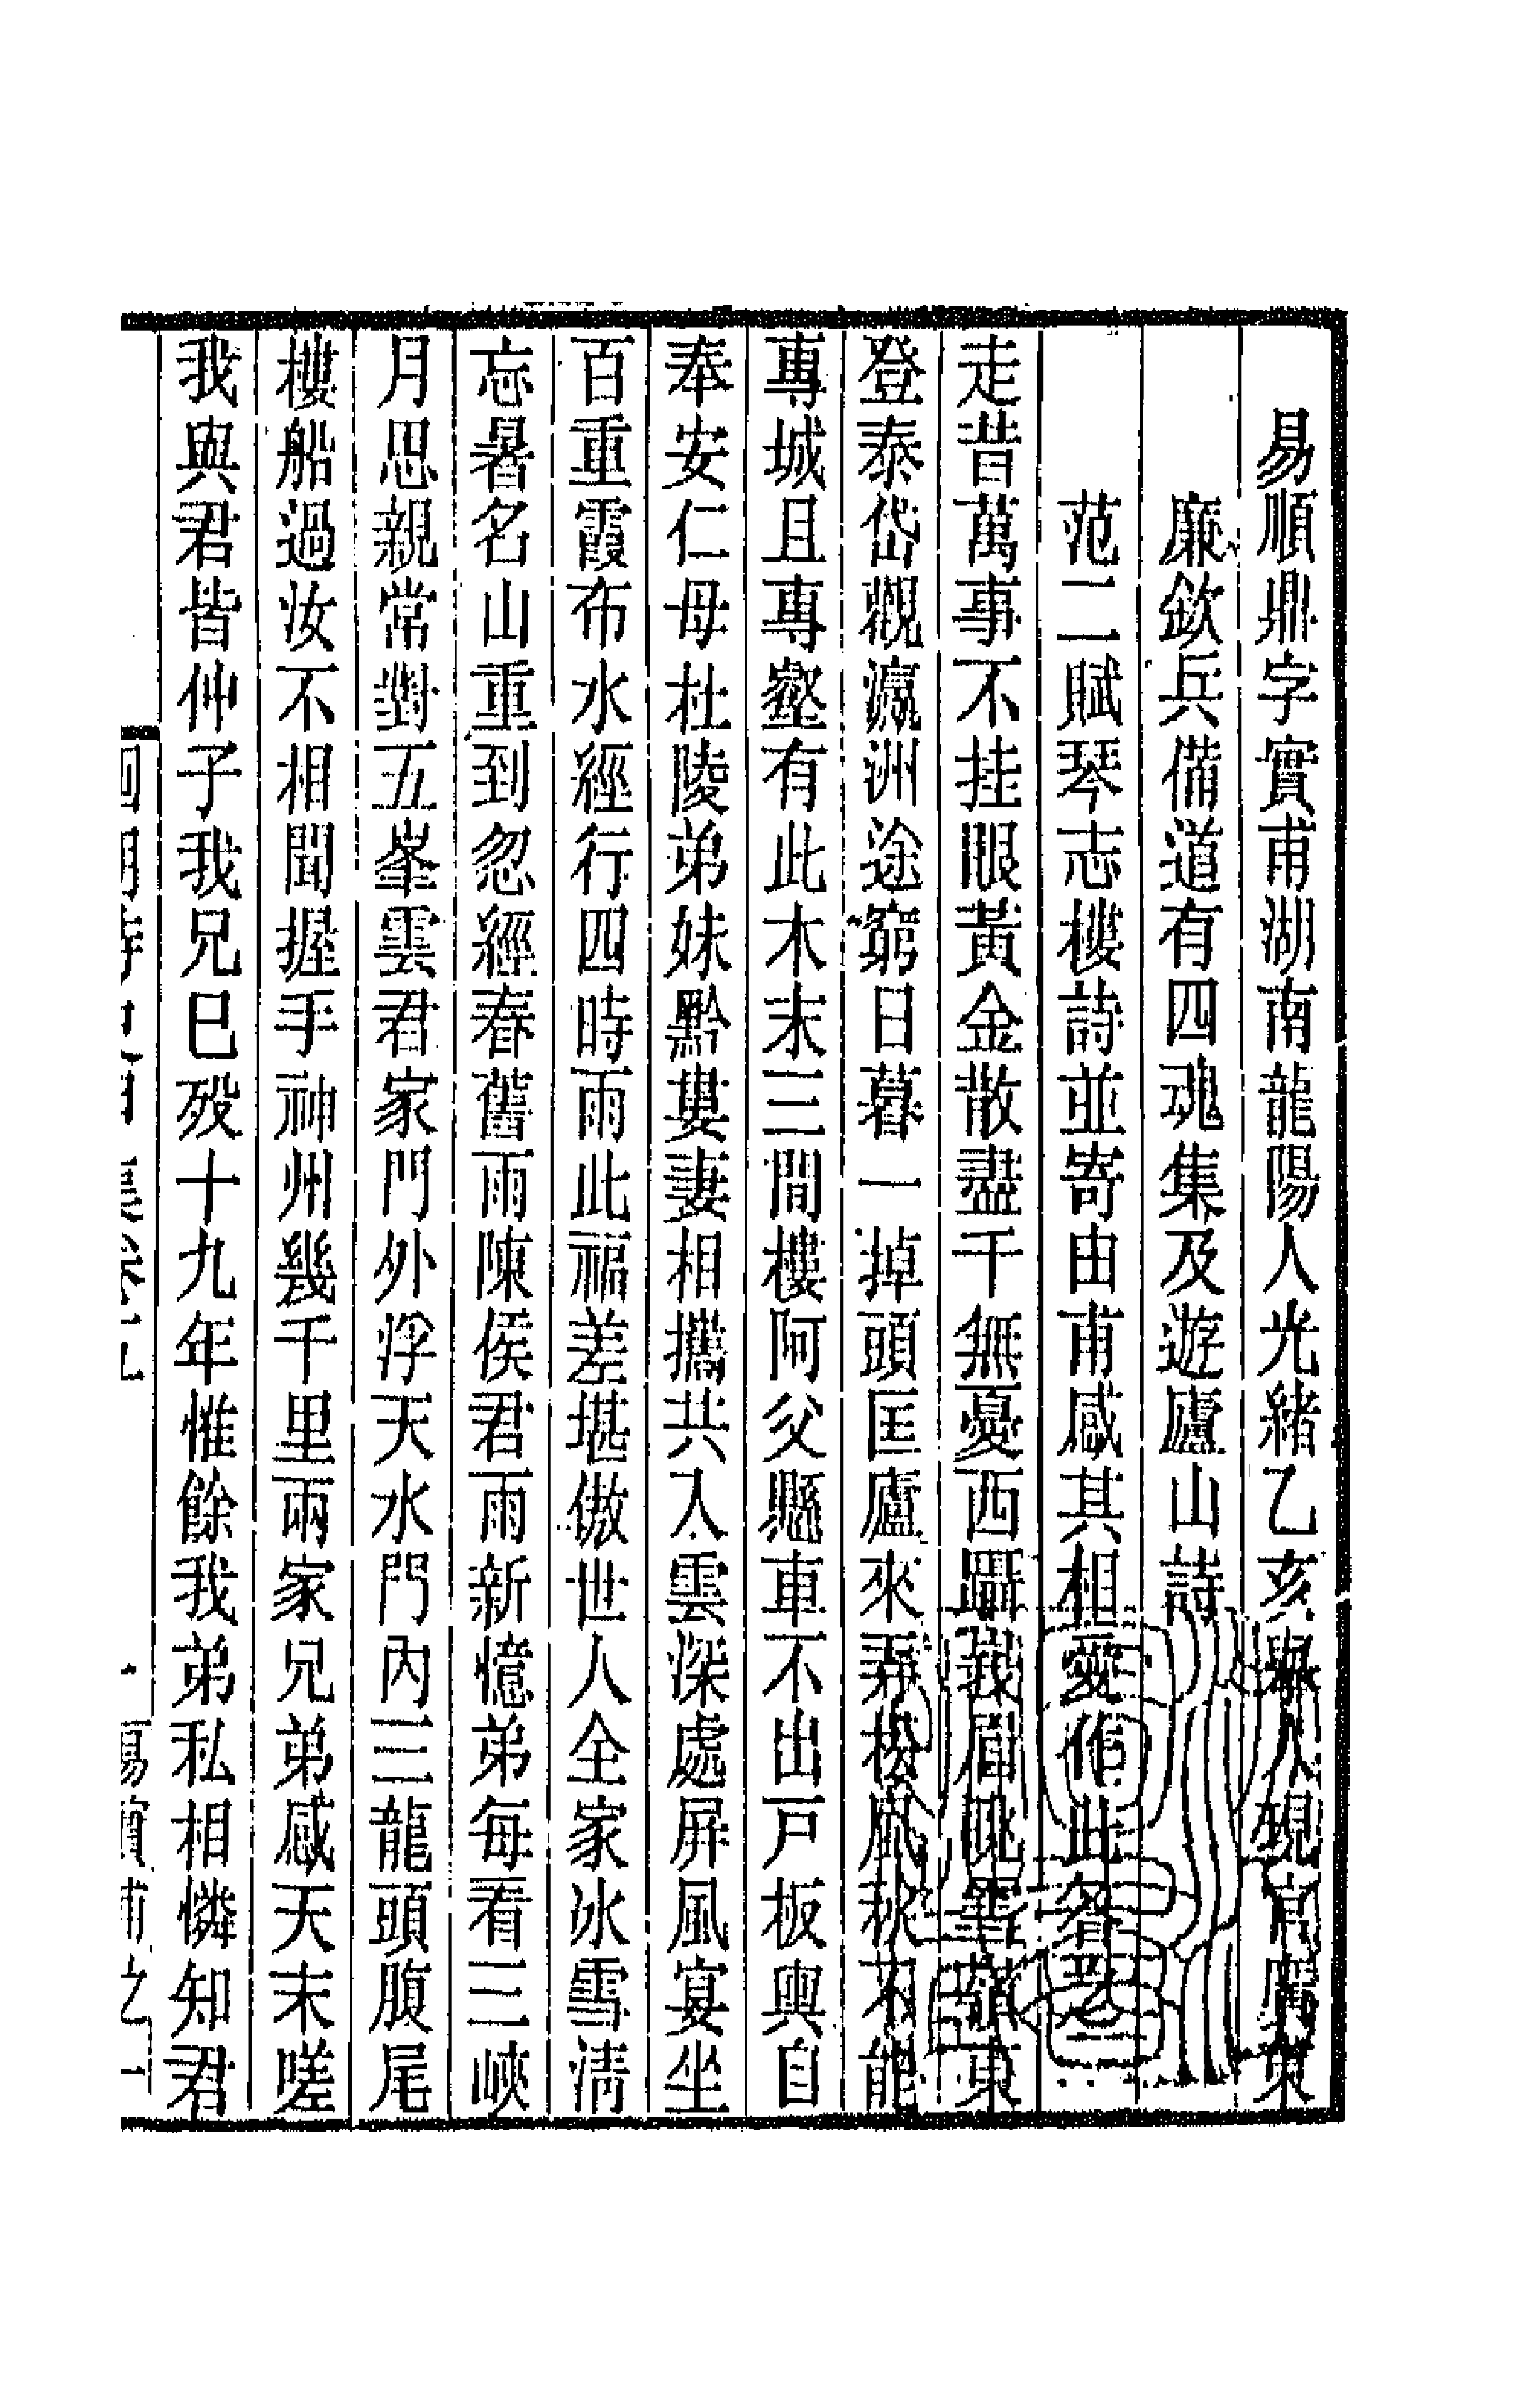 易順鼎字實甫湖南龍陽人光緒乙亥舉人現官廣東
廉欽兵備道有四魂集及遊廬山詩
范二賦琴志樓詩並寄由甫感其相愛作此答之
走昔萬事不挂眼黃金散盡千無憂西躡峩眉眺雪嶺東
登泰岱觀瀛洲途窮日暮一掉頭匡廬來弄松風秋不能
專城且專壑有此木末三間樓阿父懸車不出戸板輿自
奉安仁母杜陵弟妹黔婁妻相攜共入雲深處屏風宴坐
百重霞布水經行四時雨此福差堪傲世人全家冰雪清
忘暑名山重到忽經春舊雨陳侯君雨新憶弟每看三峽
月思親常對五峯雲君家門外浮天水門內三龍頭腹尾
樓船過汝不相聞握手神州幾千里兩家兄弟感天末嗟
我與君皆仲子我兄巳歿十九年惟餘我弟私相憐知君